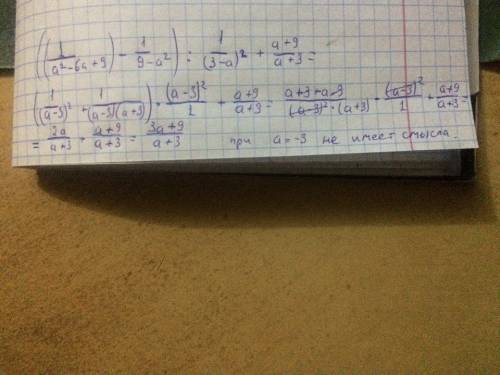 (1/(a²-6a+9) - 1/(9-a²)) : 1/(3-a)² + (a+9)/(a+3) =
(1/(a-3)² + 1/((a-3)(a+3))) · (a-3)²/1 + (a+9)/(a+3) = (a+3+a-3)/((a-3)²·(a+3)) · (a-3)²/1 + (a+9)/(a+3) =
= 2a/(a+3) + (a+9)/(a+3) = (3a+9)/(a+3) при a=-3 не имеет смысла.